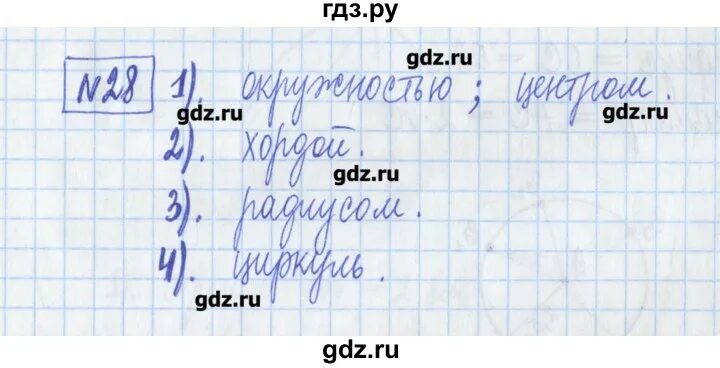 гдз.ру
gdz.ru
№28 1). окружностью; центром.
gdz.ru gdz.ru
2). хордой.
gdz.ru
3). радиусом.
4). циркуль.
gdz.ru
gdz.ru